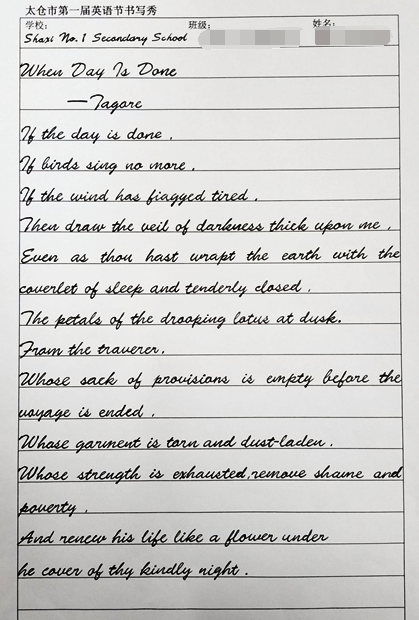 太仓市第一届英语节书写秀
学校: 班级: 姓名:
Shaxi No.1 Secondary School
When Day Is Done
—Tagore
If the day is done ,
If birds sing no more ,
If the wind has fiagged tired ,
Then draw the veil of darkness thick upon me ,
Even as thou hast wrapt the earth with the
coverlet of sleep and tenderly closed ,
The petals of the drooping lotus at dusk.
From the traverer,
Whose sack of provisions is empty before the
voyage is ended ,
Whose garment is torn and dust-laden ,
Whose strength is exhausted,remove shame and
poverty ,
And renew his life like a flower under
he cover of thy kindly night .